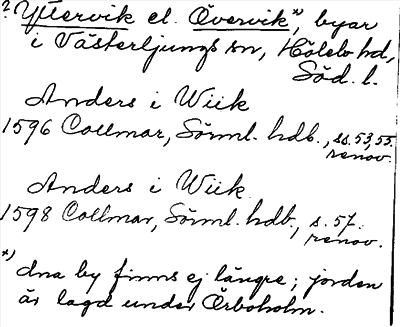 ? Yttervik el. Övervik *), byar
i Västerljungs sn, Hölebo hd,
Söd. l.
Anders i Wiik
1596 Collmar, Sörml. hdb., ss. 53, 55.
renov.
Anders i Wiik
1598 Collmar, Sörml. hdb., s. 57.
renov.
*)
dna by finns ej längre; jorden
är lagd under Örboholm.